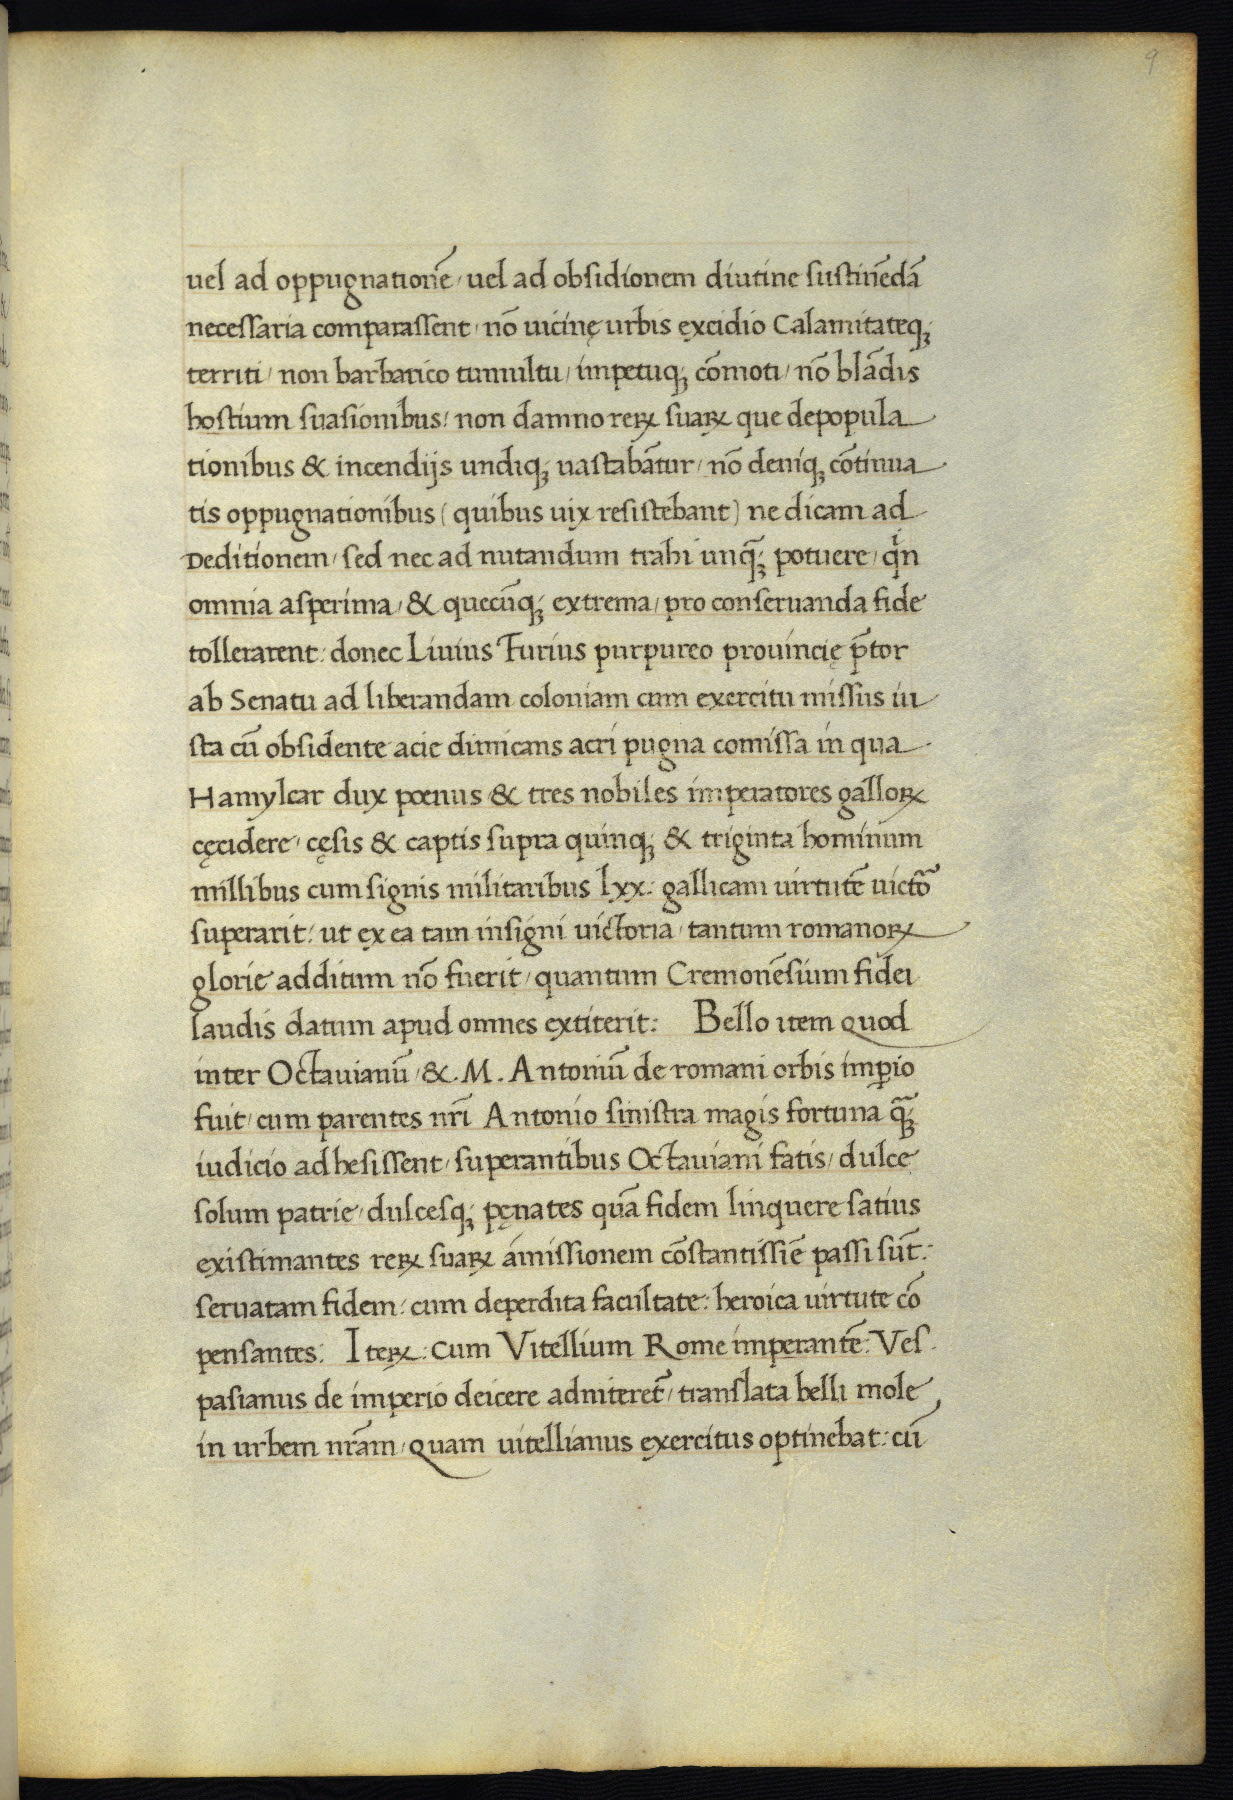 9
uel ad oppugnationē / uel ad obsidionem diutine sustinēdā
necessaria comparassent / nō uicinę urbis excidio Calamitateq;
territi / non barbarico tumultu / impetuq; cōmoti / nō blādis
hostium suasionibus / non damno reꝝ suaꝝ que depopula
tionibus & incendijs undiq; uastabātur / nō deniq; cōtinua
tis oppugnationibus ( quibus uix resistebant ) ne dicam ad
Deditionem / sed nec ad nutandum trahi unq̄; potuere / qͥn
omnia asperima / & quecūq; extrema / pro conseruanda fide
tollerarent : donec Liuius Furius purpureo prouincię p̄tor
ab Senatu ad liberandam coloniam cum exercitu missus iu
sta cū obsidente acie dimicans acri pugna comissa in qua
Hamylcar dux pœnus & tres nobiles imperatores galloꝝ
cęcidere / cęsis & captis supra quinq; & triginta hominum
millibus cum signis militaribus lxx : gallicam uirtutē uictō
superarit : ut ex ea tam insigni uictoria / tantum romanoꝝ
glorie additum nō fuerit / quantum Cremonēsium fidei
laudis datum apud omnes extiterit : Bello item quod
inter Octauianū / & . M . Antoniū de romani orbis imꝑio
fuit / cum parentes nr̄i Antonio sinistra magis fortuna q̄;
iudicio adhesissent / superantibus Octauiani fatis / dulce
solum patrie / dulcesq; pęnates quā fidem linquere satius
existimantes reꝝ suaꝝ amissionem cōstantissīe passi sūt :
seruatam fidem : cum deperdita facultate : heroica uirtute cō
pensantes : Iteꝝ : cum Vitellium Rome imperantē : Ves
pasianus de imperio deicere adniteret̄ / translata belli mole
in urbem nr̄am / quam uitellianus exercitus optinebat : cū